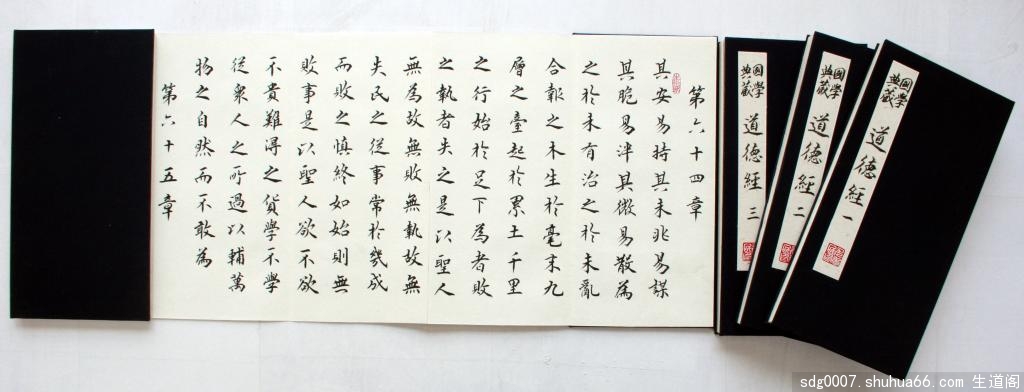 國學
典藏
道德經 一
國學
典藏
道德經 二
國學
典藏
道德經 三
第六十四章
其安易持其未兆易謀
其脆易泮其微易散為
之於未有治之於未亂
合報之木生於毫末九
層之臺起於累土千里
之行始於足下為者敗
之執者失之是以聖人
無為故無敗無執故無
失民之從事常於幾成
而敗之慎終如始則無
敗事是以聖人欲不欲
不貴難得之貨學不學
從衆人之所過以輔萬
物之自然而不敢為
第六十五章
sdg0007.shuhua66.com 生道阁